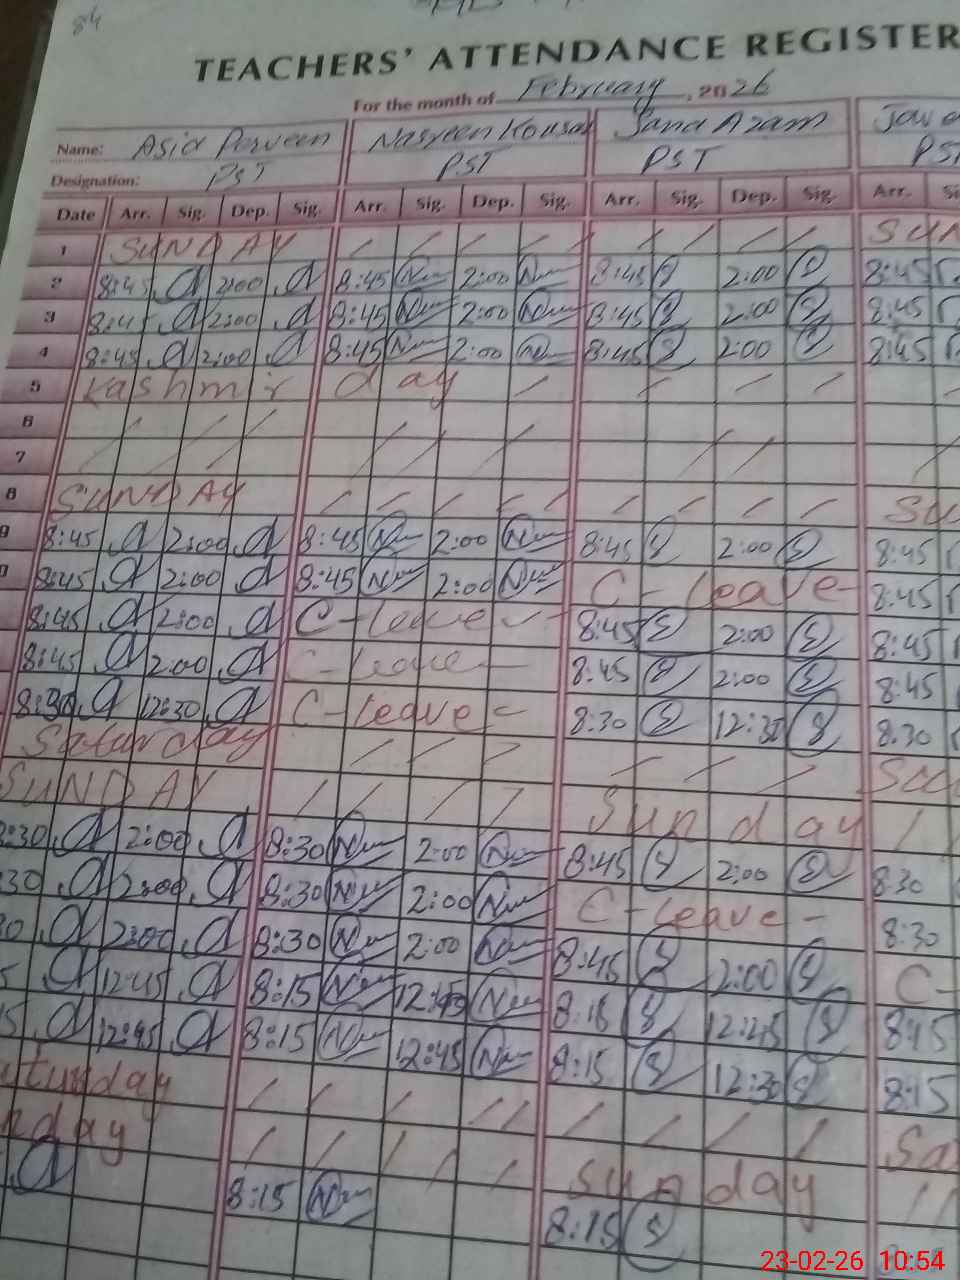 84
TEACHERS' ATTENDANCE REGISTER
For the month of February, 2026
Name: Asia Perveen Nasreen Kousar Sana Azam
Designation: PST PST PST PST
Date Arr. Sig. Dep. Sig. Arr. Sig. Dep. Sig. Arr. Sig. Dep. Sig. Arr.
1 SUNDAY / / / / / / / / SUN
2 8:45 a 2:00 a 8:45 Nun 2:00 Nun 8:45 S 2:00 S 8:45
3 8:45 a 2:00 a 8:45 Nun 2:00 Nun 8:45 S 2:00 S 8:45
4 8:45 a 2:00 a 8:45 Nun 2:00 Nun 8:45 S 2:00 S 8:45
5 Kashmir day / / / / /
6 / / / / / / /
7 / / / / / / / /
8 SUNDAY / / / / / / / / SU
9 8:45 a 2:00 a 8:45 Nun 2:00 Nun 8:45 S 2:00 S 8:45
8:45 a 2:00 a 8:45 Nun 2:00 Nun C-leave- 8:45
8:45 a 2:00 a C-leave- 8:45 S 2:00 S 8:45
8:45 a 2:00 a C-leave- 8:45 S 2:00 S 8:45
8:30 a 12:30 a C-leave- 8:30 S 12:30 S 8:30
Saturday / / / / / /
SUNDAY / / / / Sunday /
8:30 a 2:00 a 8:30 Nun 2:00 Nun 8:45 S 2:00 S 8:30
30 a 2:00 a 8:30 Nun 2:00 Nun C-leave- 8:30
0 a 2:00 a 8:30 Nun 2:00 Nun 8:45 S 2:00 S C-
5 a 12:45 a 8:15 Nun 12:45 Nun 8:15 S 12:45 S 8:15
15 a 12:45 a 8:15 Nun 12:45 Nun 8:15 S 12:30 S 8:15
aturday / / / / / / / / / Sa
nday / / / / / Sunday / /
a 8:15 Nun 8:15 S
23-02-26 10:54